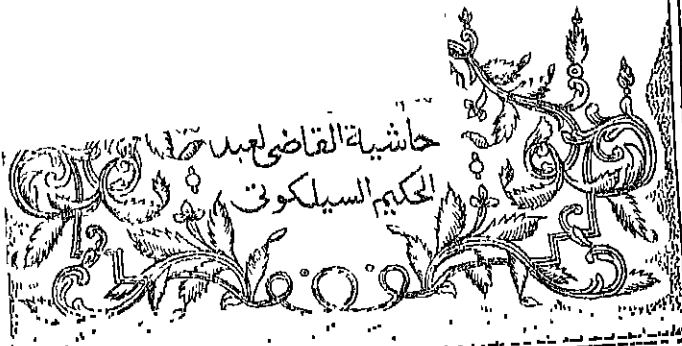 حاشية القاضى لعبد
الحكيم السيلكوتى